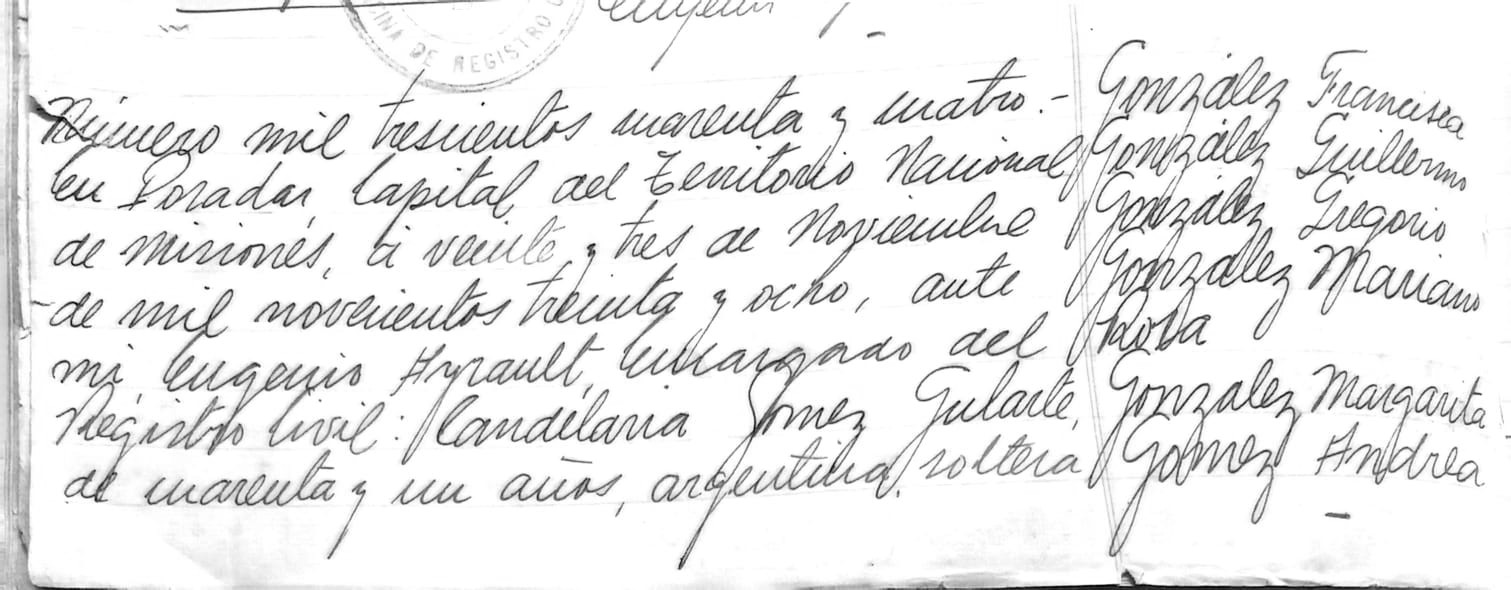 CINA DE REGISTRO C
Número mil trescientos cuarenta y cuatro.-
En Posadas, Capital del Territorio Nacional
de Misiones, á veinte y tres de Noviembre
de mil novecientos treinta y ocho, ante
mi Eugenio Ayrault, Encargado del
Registro Civil: Candelaria Gomez Gularte,
de cuarenta y un años, argentina, soltera
González Francisca
González Guillermo
González Gregorio
González Mariano
Rosa
González Margarita
Gomez Andrea